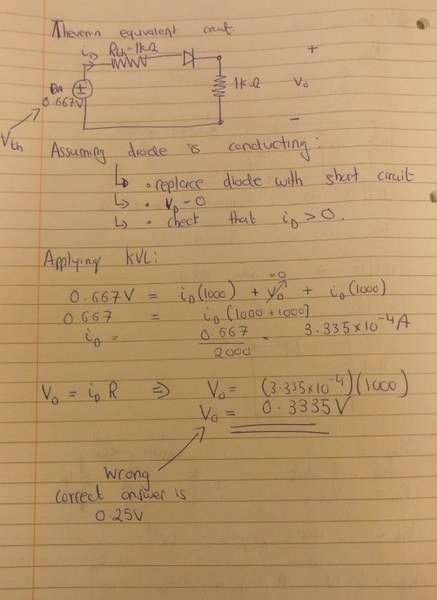 Thevenin equivalent circuit.
iD Rth=1kΩ
+
1kΩ Vo
0.667V
-
Vth
Assuming diode is conducting:
↳ • replace diode with short circuit
↳ • VD = 0
↳ • check that iD > 0.
Applying KVL:
=0
0.667V = iD(1000) + VD + iD(1000)
0.667 = iD(1000+1000)
iD = 0.667/2000 = 3.335×10⁻⁴A
Vo = iD R ⇒ Vo = (3.335×10⁻⁴)(1000)
Vo = 0.3335V
Wrong
correct answer is
0.25V